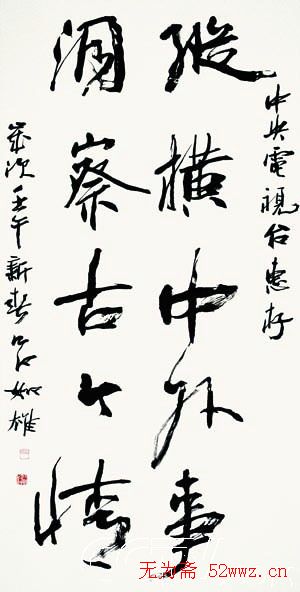 中央電視台惠存
縱橫中外事
洞察古今情
歲次壬午新春吕如雄
无为斋 52wwz.cn